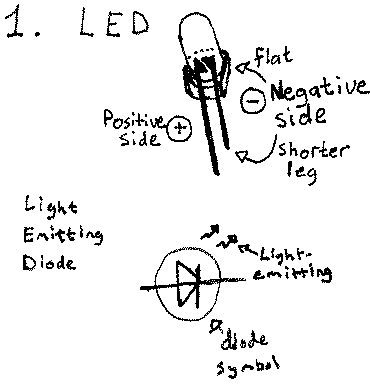 1. LED
flat
⊖ Negative
side
Positive ⊕
side
shorter
leg
Light
Emitting
Diode
Light-
emitting
diode
symbol